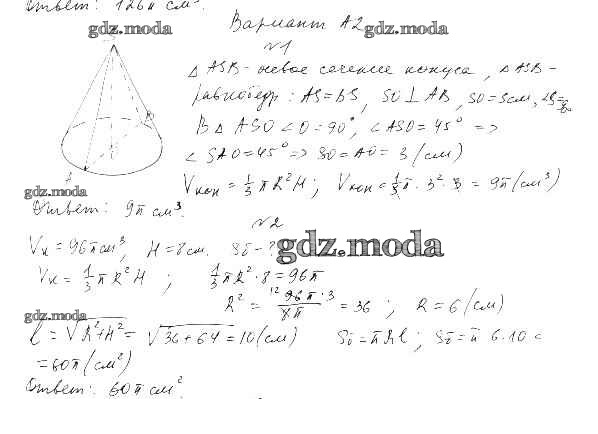 Ответ: 126π см³.
Вариант А2
gdz.moda gdz.moda
№1
△ ASB - осевое сечение конуса, △ ASB -
равнобедр: AS=BS, SO⊥AB, SO=3см,
В △ ASO ∠O=90°, ∠ASO=45° =>
∠SAO=45° => SO=AO=3(см)
Vкон = 1/3 πR²H; Vкон = 1/3 π·3²·3 = 9π(см³)
gdz.moda
Ответ: 9π см³.
№2
Vк = 96π см³, H=8см. Sб-?
gdz.moda
Vк = 1/3 πR²H; 1/3 πR²·8=96π
R² = 12 96π·3 / 8π = 36; R=6(см)
gdz.moda
l = √R²+H² = √36+64 = 10(см) Sб = πRl; Sб = π 6·10 =
= 60π(см²)
Ответ: 60π см².